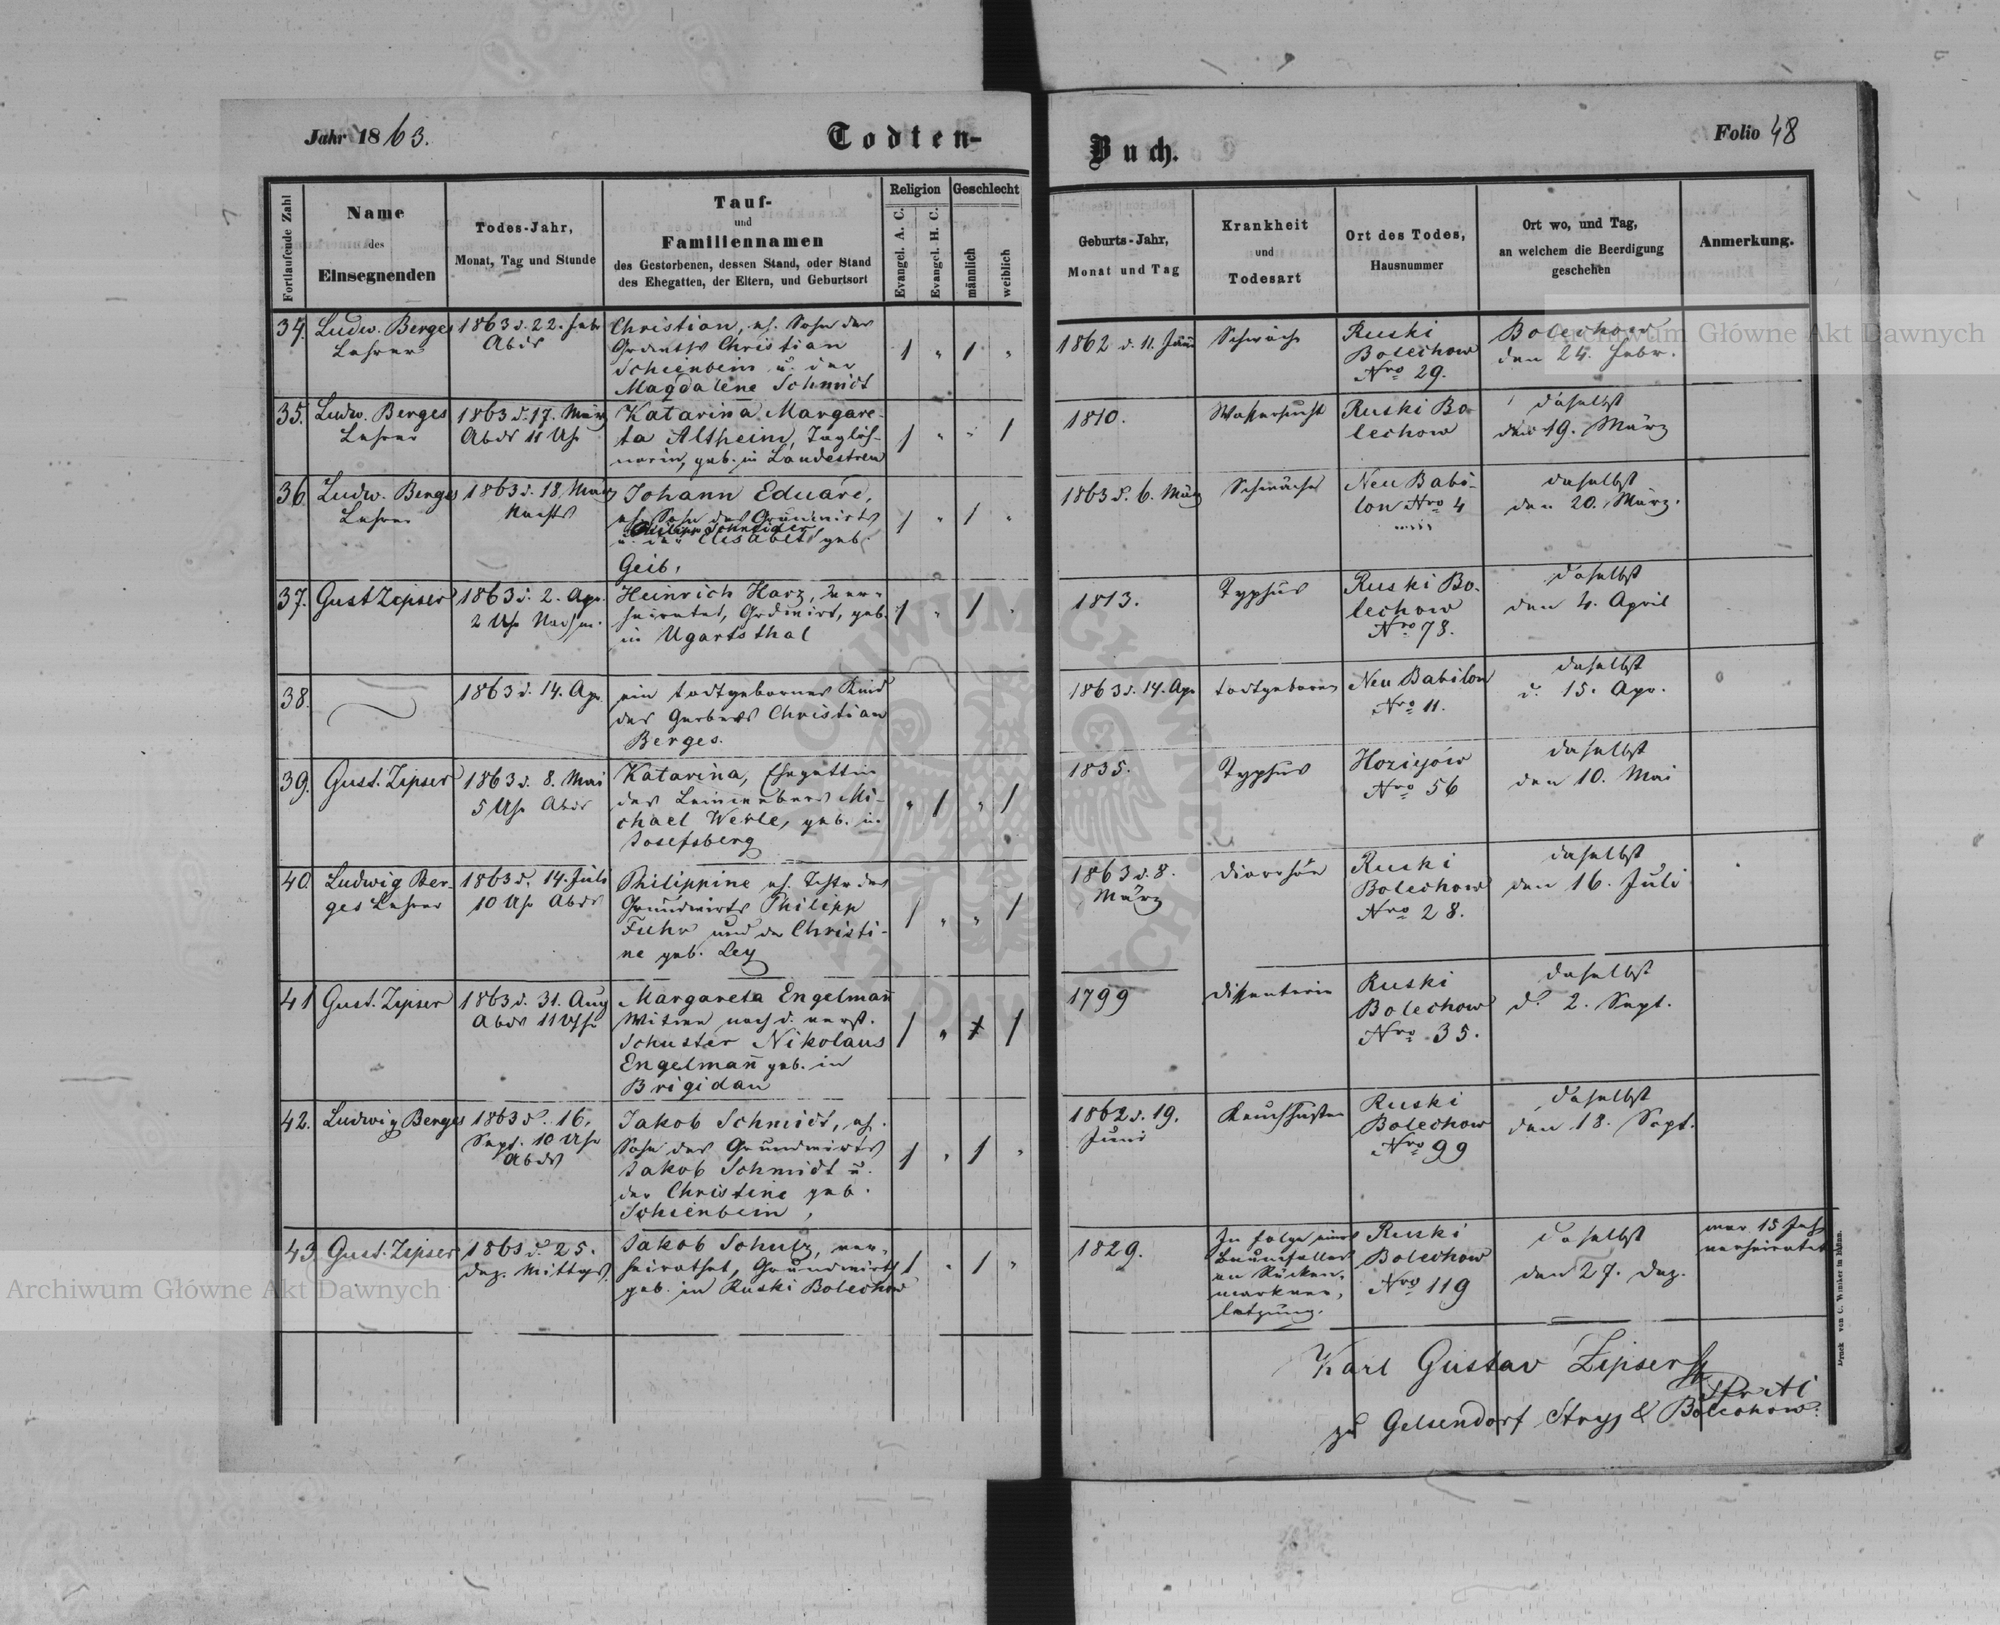 Jahr 1863.
Todten-
Buch.
Folio 48
Fortlaufende Zahl
Name
des
Einsegnenden
Todes-Jahr,
Monat, Tag und Stunde
Tauf-
und
Familiennamen
des Gestorbenen, dessen Stand, oder Stand
des Ehegatten, der Eltern, und Geburtsort
Religion
Evangel. A. C.
Evangel. H. C.
Geschlecht
männlich
weiblich
Geburts-Jahr,
Monat und Tag
Krankheit
und
Todesart
Ort des Todes,
Hausnummer
Ort wo, und Tag,
an welchem die Beerdigung
geschehen
Anmerkung.
34.
Ludw. Berges
Lehrer
1863 d. 22. Febr
Abds
Christian, eh. Sohn des
Grdwths Christian
Schienbein u. der
Magdalene Schmidt
1 " 1 "
1862 d. 11. Juni
Schwäche
Ruski
Bolechow
Nro 29.
Bolechow
den 24. Febr.
35.
Ludw. Berges
Lehrer
1863 d. 17. März
Abds 11 Uhr
Katarina Margare-
ta Altheim, Taglöh-
nerin, geb. in Landestreu
1 " " 1
1810.
Wassersucht
Ruski Bo-
lechow
daselbst
den 19. März
36.
Ludw. Berges
Lehrer
1863 d. 18. März
Nachts
Johann Eduard,
eh. Sohn des Grundwirts
Philipp Schneider
u. der Elisabet geb.
Geib.
1 " 1 "
1863 d. 6. März
Schwäche
Neu Babi-
lon Nro 4
daselbst
den 20. März.
37.
Gust Zipser
1863 d. 2. Apr.
2 Uhr Nachm.
Heinrich Harz, ver-
heiratet, Grdwirt, geb.
in Ugartsthal
1 " 1 "
1813.
Typhus
Ruski Bo-
lechow
Nro 78.
daselbst
den 4. April
38.
1863 d. 14. Apr
ein todtgebornes Kind
des Gerbers Christian
Berges.
1863 d. 14. Apr
todtgeboren
Neu Babilon
Nro 11.
daselbst
d. 15. Apr.
39.
Gust. Zipser
1863 d. 8. Mai
5 Uhr Abds
Katarina, Ehegattin
des Leinwebers Mi-
chael Werle, geb. in
Josefsberg
" 1 " 1
1835.
Typhus
Hoziejów
Nro 56
daselbst
den 10. Mai
40.
Ludwig Ber-
ges Lehrer
1863 d. 14. Juli
10 Uhr Abds
Philippine eh. Tchtr des
Grundwirts Philipp
Fuhr und der Christi-
ne geb. Ley
1 " " 1
1863 d. 8.
März
Diarrhöe
Ruski
Bolechow
Nro 28.
daselbst
den 16. Juli
41
Gust. Zipser
1863 d. 31. Aug
Abds 11 Uhr
Margareta Engelmañ
Witwe nach d. verst.
Schuster Nikolaus
Engelmañ geb. in
Brigidau
1 " 1
1799
Dissenterie
Ruski
Bolechow
Nro 35.
daselbst
d. 2. Sept.
42.
Ludwig Berges
1863 d. 16.
Sept. 10 Uhr
Abds
Jakob Schmidt, eh.
Sohn des Grundwirts
Jakob Schmidt u.
der Christine geb.
Schienbein,
1 " 1 "
1862 d. 19.
Juni
Keuchhusten
Ruski
Bolechow
Nro 99
daselbst
den 18. Sept.
43.
Gust. Zipser
1863 d. 25.
Dez. Mittags
Jakob Schulz, ver-
heirathet, Grundwirt
geb. in Ruski Bolechow
1 " 1 "
1829.
In folge eines
Baumfalles
an Rücken-
markver-
letzung.
Ruski
Bolechow
Nro 119
daselbst
den 27. Dez.
war 15 Jahr
verheiratet
Karl Gustav Zipser
zu Gelsendorf Stryj & Bolechow.
Druck von C. Winiker in Brünn.
Archiwum Główne Akt Dawnych
Archiwum Główne Akt Dawnych
ARCHIWUM GŁÓWNE AKT DAWNYCH